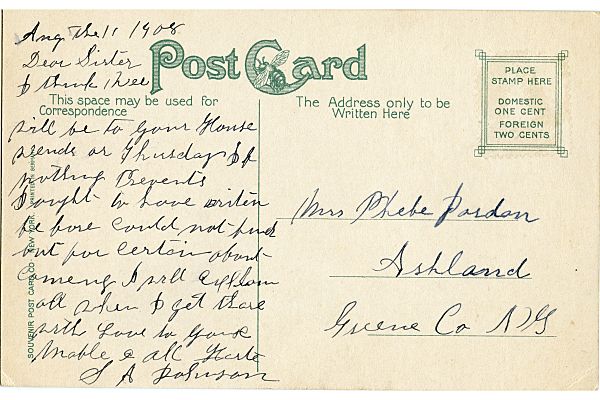 Aug the 11 1908
Dear Sister
I think I wee
will be to your House
wends or Thursday If
nothing Prevents
I ought to have writen
be fore could not find
out for certin about
Comeing I will explain
all when I get there
with Love to you &
Mable & all
S A Johnson
Post Card
This space may be used for
Correspondence
The Address only to be
Written Here
PLACE
STAMP HERE
DOMESTIC
ONE CENT
FOREIGN
TWO CENTS
Mrs Phebe Jordan
Ashland
Greene Co NY
SOUVENIR POST CARD CO. NEW YORK.